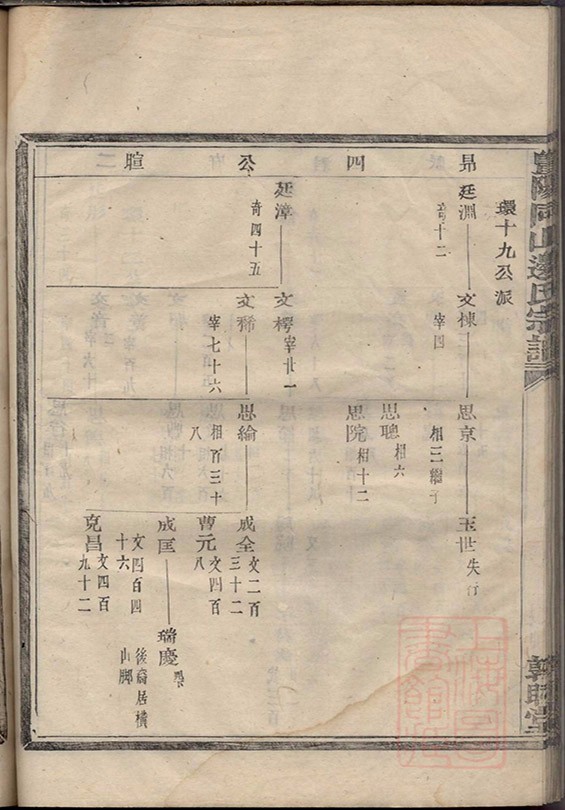 暨陽同山邊氏宗譜
敦睦堂
昴 四 公 暄
環十九公派
廷淵 奇十二
文棟 宰四
思京 相三繼子
玉世 失行
思聰 相六
思院 相十二
廷漳 奇四十五
文樗 宰廿一
文稀 宰七十六
思綸 相百三十八
成全 文二百三十二
曹元 文四百八
成匡 文四百四十六
瑞慶
後裔居橫山脚
克昌 文四百九十二